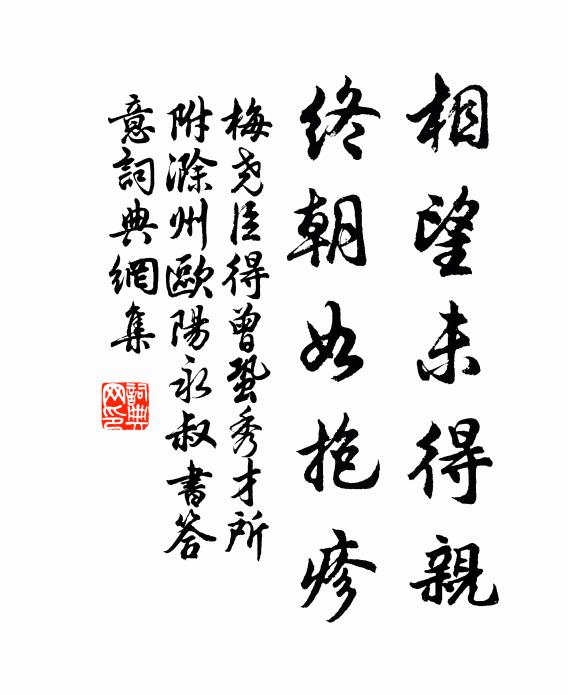 相望未得親
終朝如抱疹
梅堯臣得曾鞏秀才所
附滁州歐陽永叔書答
意詞典網集
詞典
网印